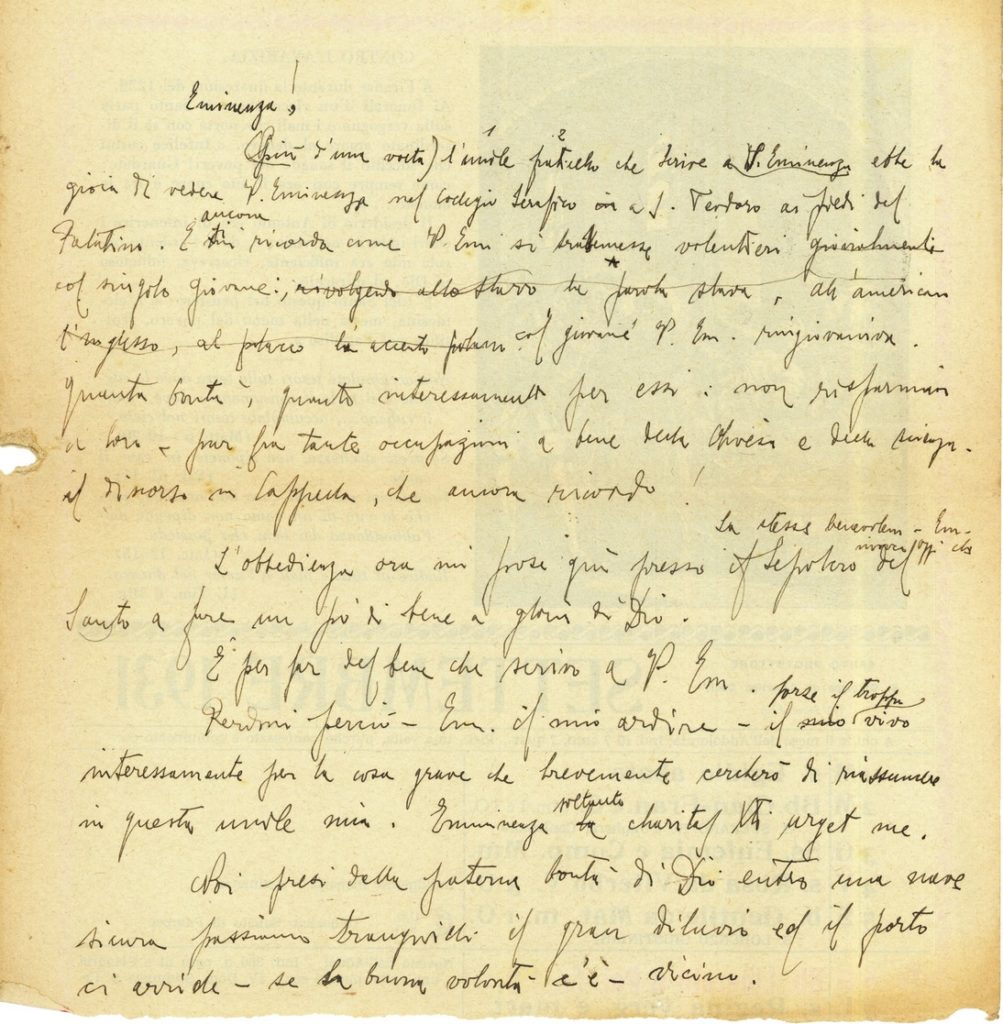 Eminenza!
(Più d'una volta) l'umile fraticello che scrive a V. Eminenza ebbe la
gioia di vedere V. Eminenza nel Collegio Serafico in a S. Teodoro ai piedi del
Palatino. E ancora ricorda come V. Em si trattenesse volentieri giovialmente
col singolo giovane: rivolgendo allo slavo la parola slava, all'american
l'inglese, al polacco la accento polacco. col giovane V. Em. ringiovaniva.
Quanta bontà, quanto interessamento per essi: non risparmiò
a loro - pur fra tante occupazioni a bene della Chiesa e della scienza -
il discorso in Cappella, che ancora ricordo!
La stessa - Em -
oggi che
L'obbedienza ora mi pose qui presso il Sepolcro del
Santo a fare un pò di bene a gloria di Dio.
È per far del bene che scrivo a V. Em.
forse il troppo
Perdoni perciò - Em. il mio ardire - il mio vivo
interessamento per la cosa grave che brevemente cercherò di riassumere
in questa umile mia. Eminenza soltanto la charitas Xti urget me.
Noi presi dalla paterna bontà di Dio entro una nave
sicura passiamo tranquilli il gran diluvio ed il porto
ci arride - se la buona volontà c'è - vicino.